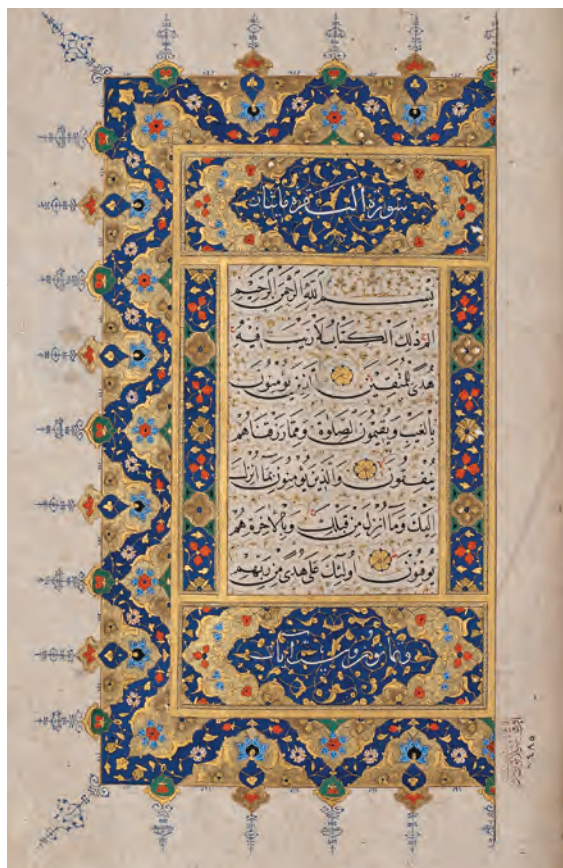 سورة البقرة مايتان
بسم الله الرحمن الرحيم
الم ذلك الكتاب لا ريب فيه
هدى للمتقين الذين يؤمنون
بالغيب ويقيمون الصلوة ومما رزقناهم
ينفقون والذين يؤمنون بما انزل
اليك وما انزل من قبلك وبالاخرة هم
يوقنون اولئك على هدى من ربهم
وثمانون وست آيات